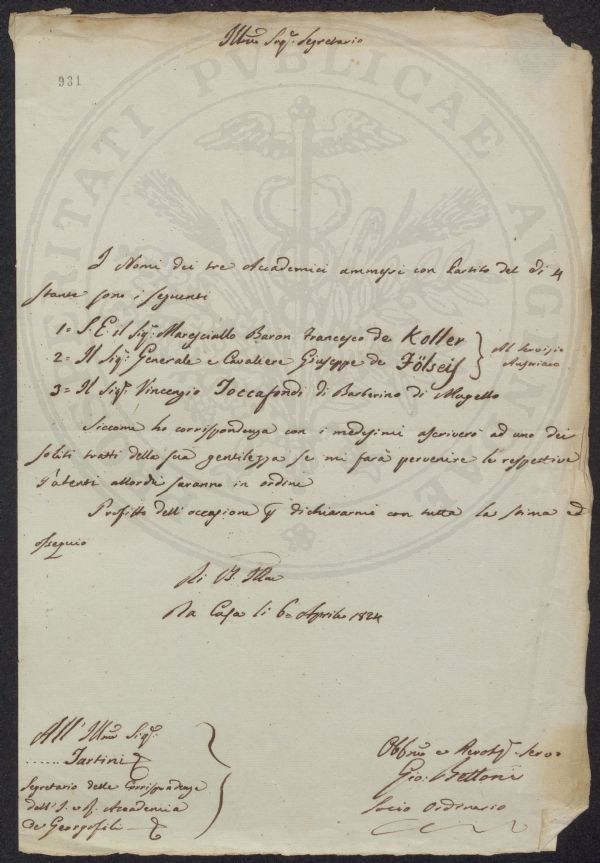 Illmo Sigr. Segretario
931
I Nomi dei tre Accademici ammessi con Partito del dì 4
stante sono i seguenti
1= S. E. il Sigr. Maresciallo Baron Francesco de Koller
2= Il Sigr. Generale e Cavaliere Giuseppe de Fölseis
Al Servizio
Austriaco
3= Il Sigr. Vincenzio Toccafondi di Barberino di Mugello
Siccome ho corrispondenza con i medesimi ascriverò ad uno dei
soliti tratti della sua gentilezza se mi farà pervenire le respettive
Patenti allorché saranno in ordine
Profitto dell'occasione per dichiararmi con tutta la stima ed
ossequio
Di VS. Illma
Da Casa li 6= Aprile 1824
All' Illmo Sigr.
...... Tartini
Segretario delle Corrispondenze
dell' I. e R. Accademia
de Georgofili
Obbmo e Devotmo Servo
Gio. Bettoni
Socio Ordinario
VERITATI PVBLICAE AVG